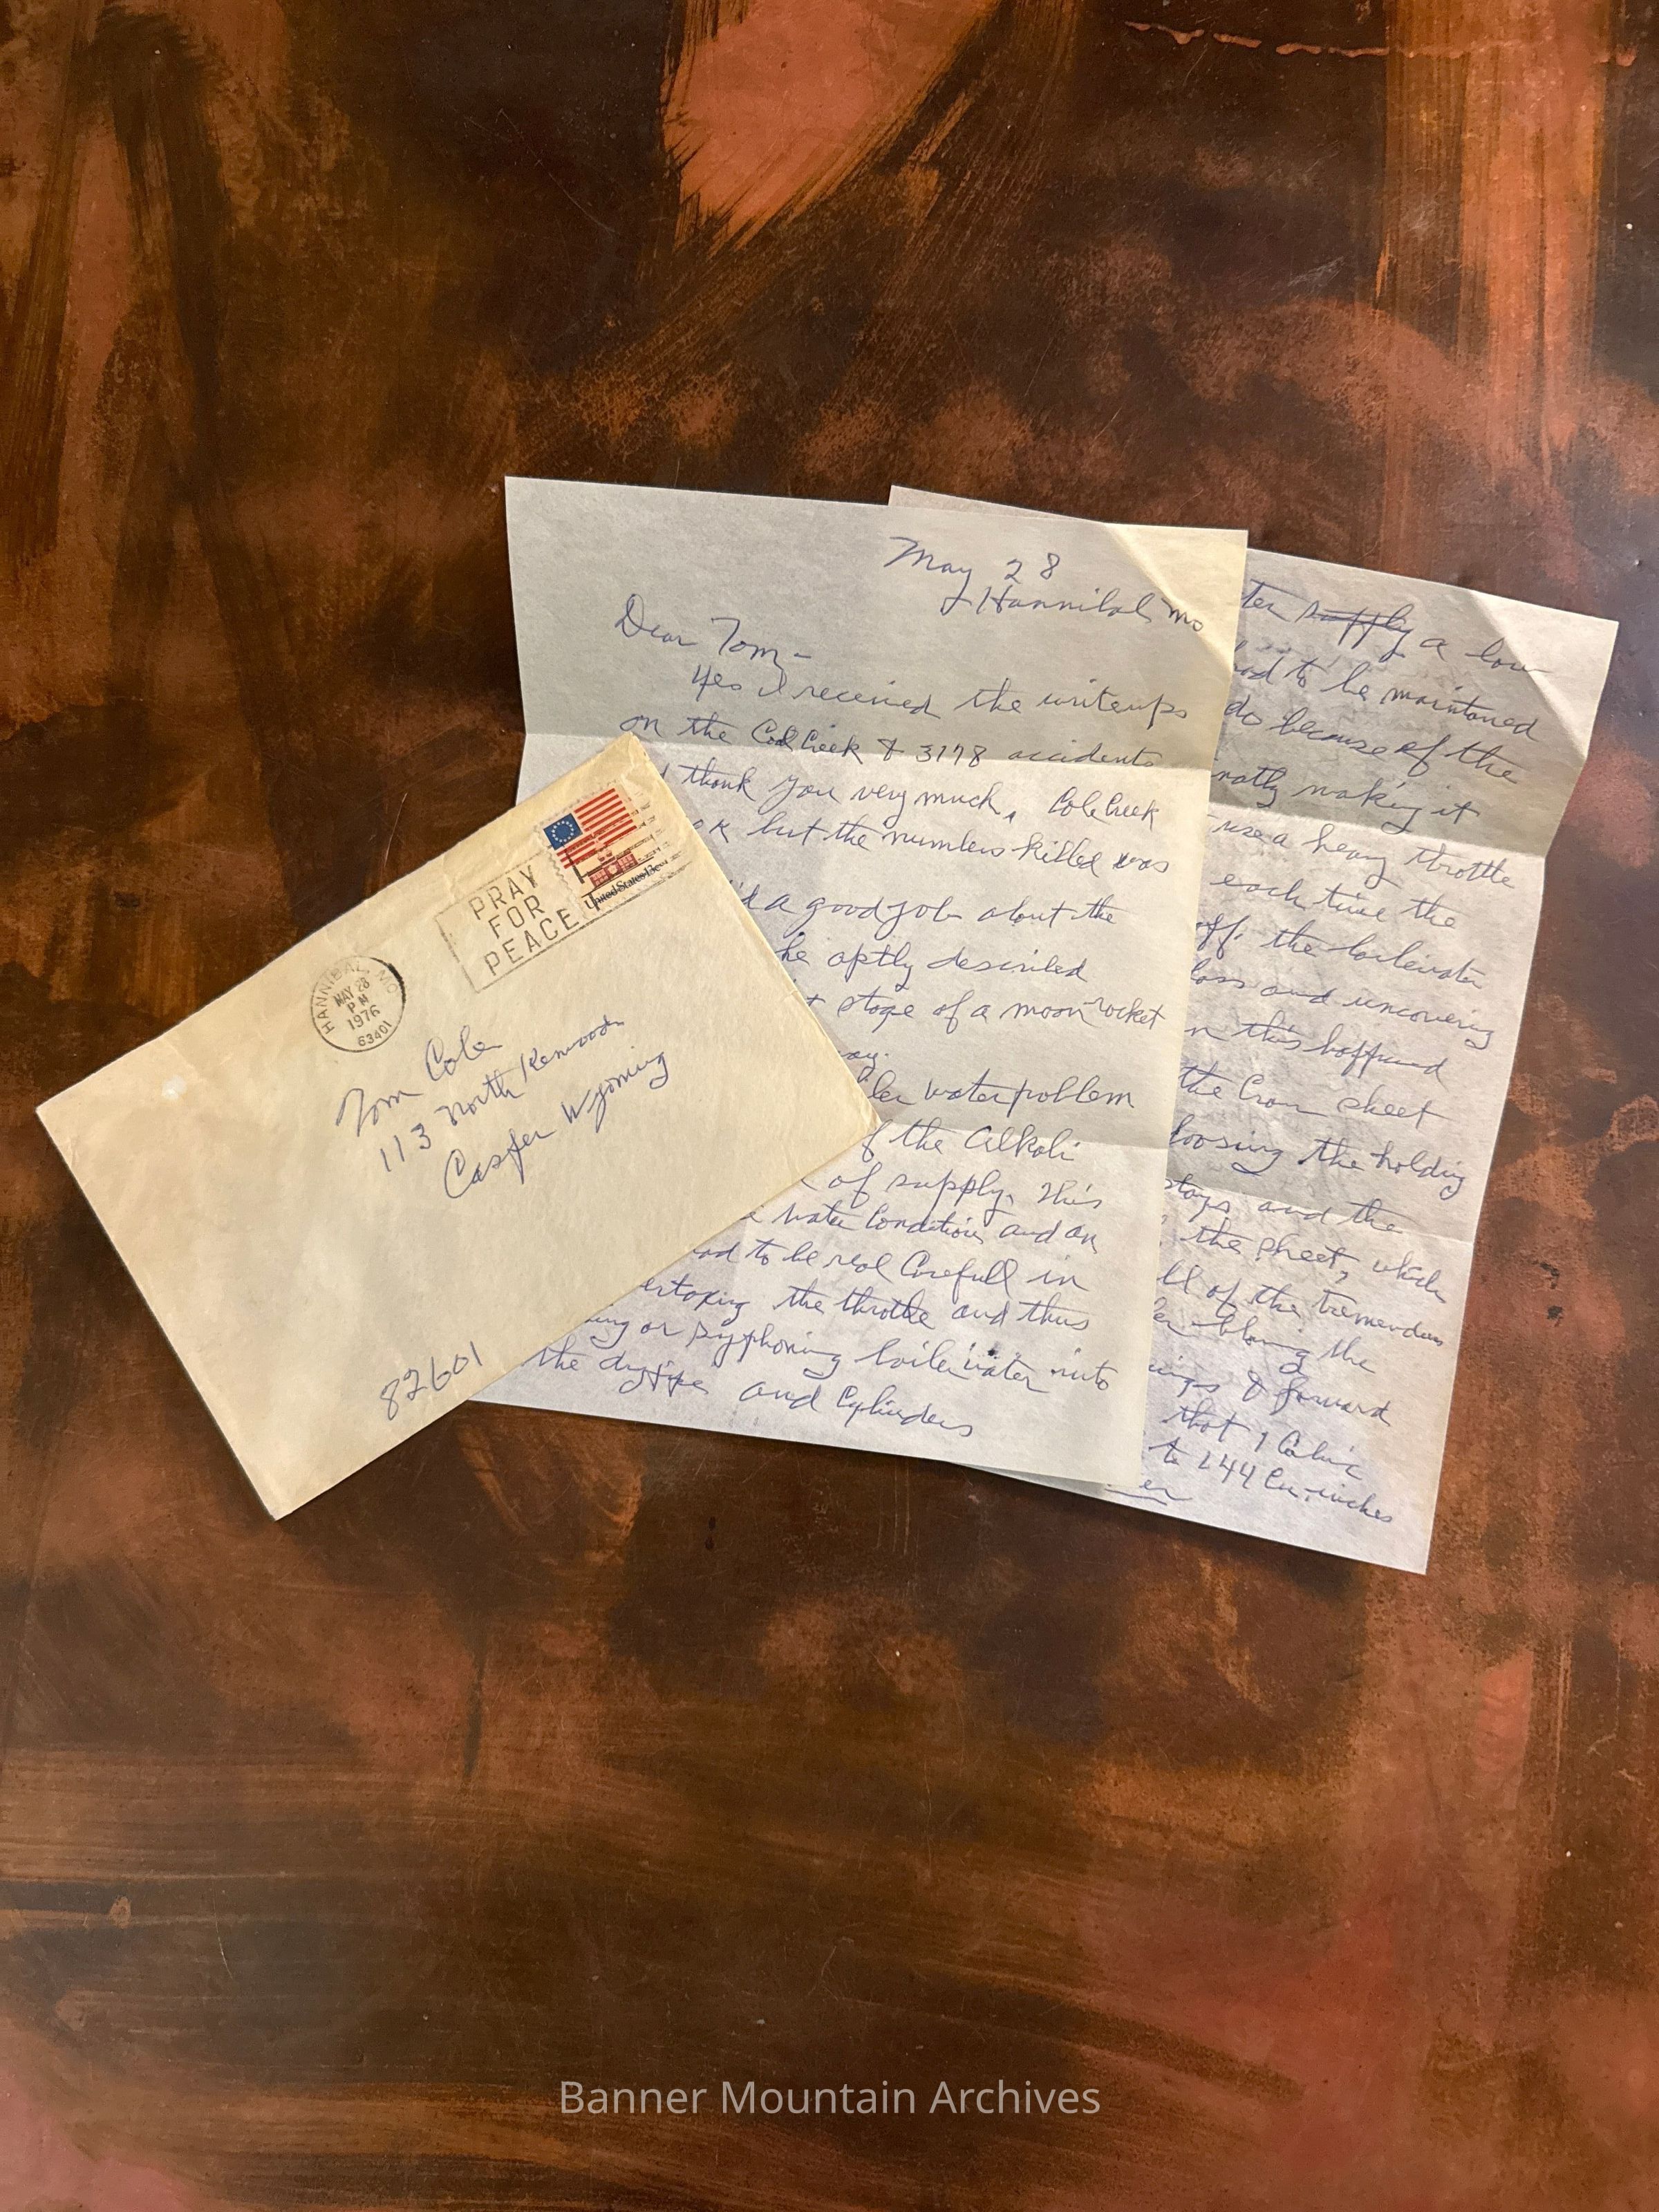 May 28
Hannibal Mo
Dear Tom -
Yes I received the writeups
on the Cole Creek & 3178 accidents
thank you very much. Cole Creek
ok but the numbers killed was
a good job about the
he aptly described
stage of a moon rocket
water problem
of the Alkali
of supply. This
water Conditions and an
to be real Carefull in
the throttle and thus
or syphoning boiler water into
the drypipe and Cylinders
supply a low
to be maintaned
do because of the
making it
use a heavy throttle
each time the
off. the boilerwater
and uncovering
this happend
the Crown sheet
loosing the holding
stays and the
the sheet, which
of the tremendous
blowing the
& forward
that 1 Cubic
to 144 Cu. inches
er
United States 13c
PRAY
FOR
PEACE
HANNIBAL, MO
MAY 28
PM
1976
63401
Tom Cole
113 North Kenwood
Casper Wyoming
82601
Banner Mountain Archives